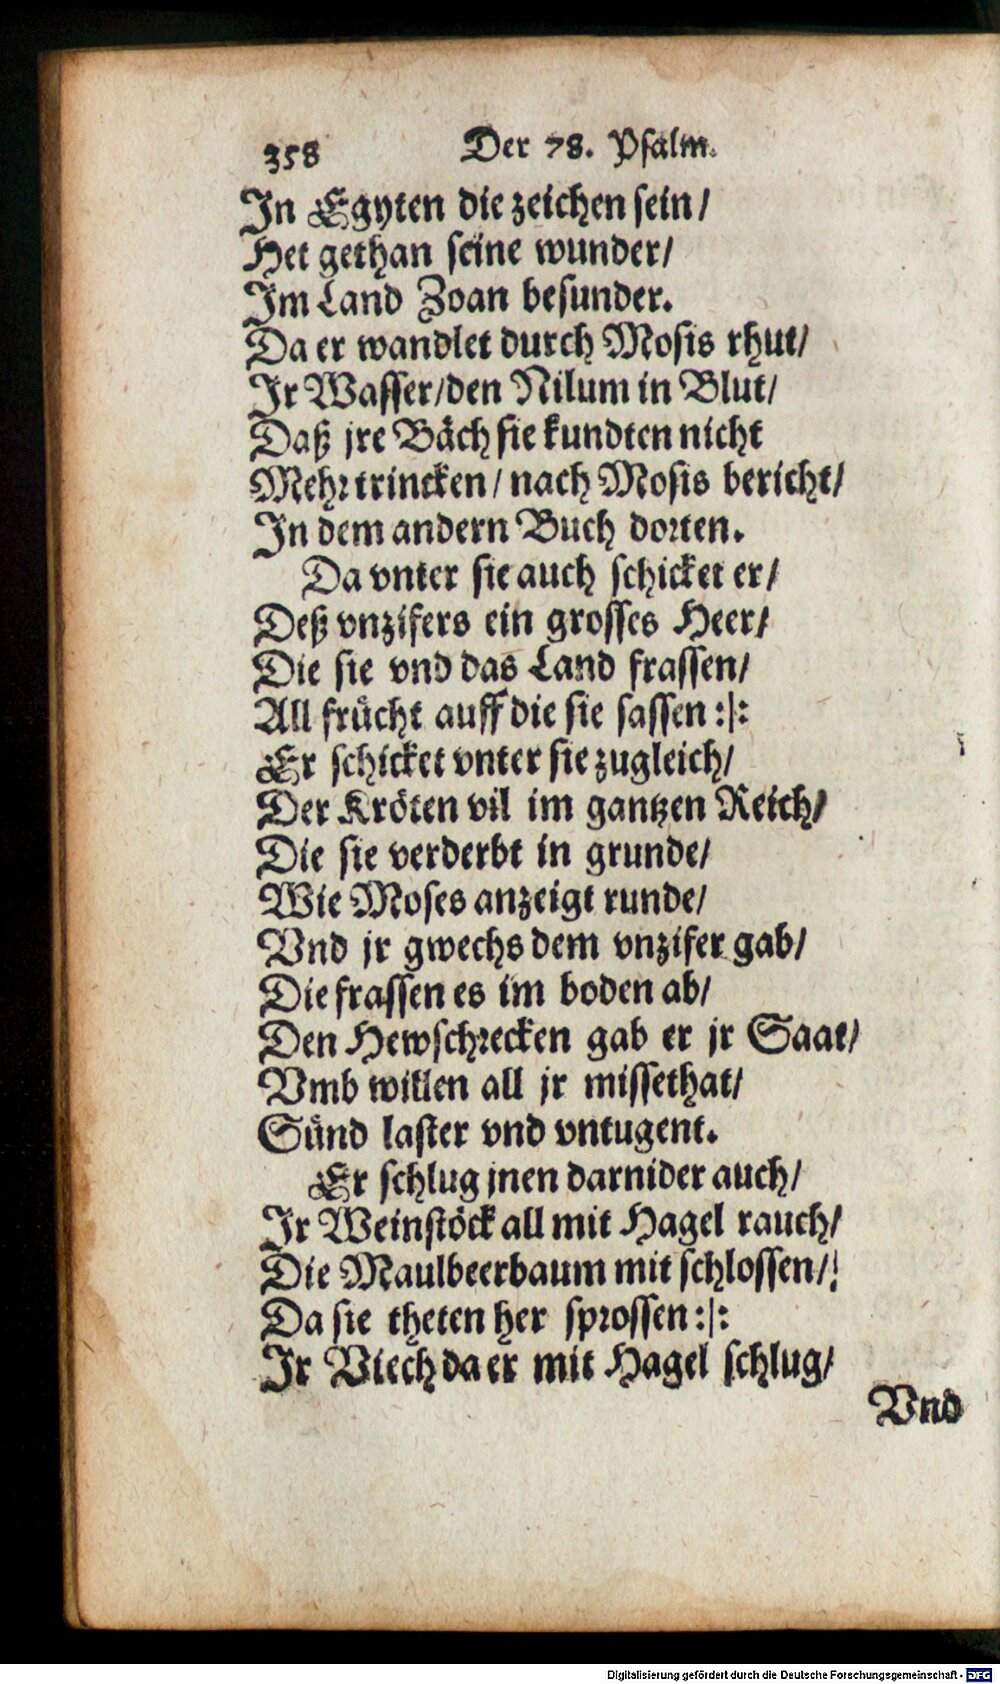 358 Der 78. Psalm.
In Egyten die zeichen sein/
Het gethan seine wunder/
Im Land Zoan besunder.
Da er wandlet durch Mosis rhut/
Jr Wasser/den Nilum in Blut/
Daß jre Bäch sie kundten nicht
Mehr trincken/ nach Mosis bericht/
In dem andern Buch dorten.
Da vnter sie auch schicket er/
Deß vnzifers ein grosses Heer/
Die sie vnd das Land frassen/
All frücht auff die sie sassen :|:
Er schicket vnter sie zugleich/
Der Kröten vil im gantzen Reich/
Die sie verderbt in grunde/
Wie Moses anzeigt runde/
Vnd jr gwechs dem vnzifer gab/
Die frassen es im boden ab/
Den Hewschrecken gab er jr Saat/
Vmb willen all jr missethat/
Sünd laster vnd vntugent.
Er schlug jnen darnider auch/
Jr Weinstöck all mit Hagel rauch/
Die Maulbeerbaum mit schlossen/
Da sie theten her sprossen :|:
Jr Viech da er mit Hagel schlug/
Vnd
Digitalisierung gefördert durch die Deutsche Forschungsgemeinschaft - DFG